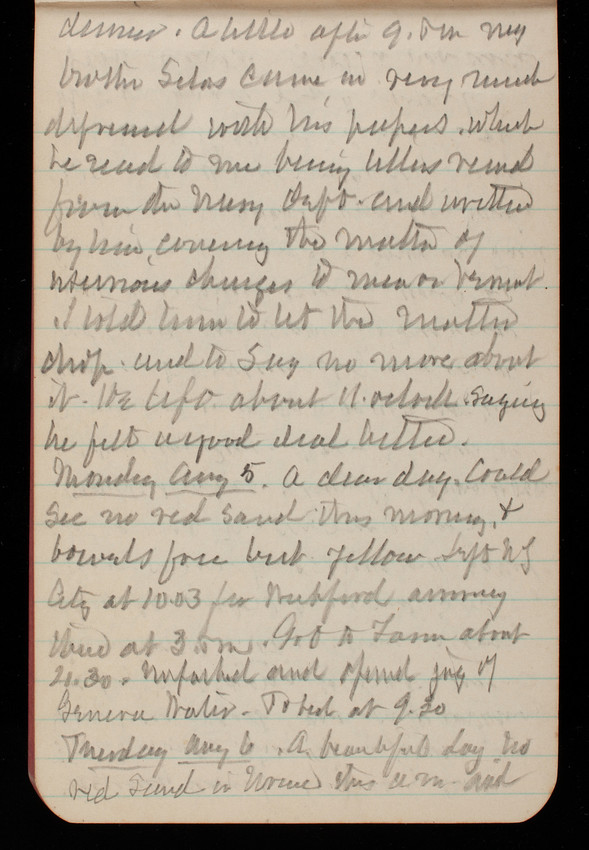 dinner. A little after 9. P m my
brother Silas came in very much
depressed with his papers. which
he read to me being letters recd
from the Navy Dept. and written
by him, covering the matter of
charges to men on Vermont.
I told him to let the matter
drop. and to say no more about
it. He left about 11. oclock saying
he felt a good deal better.
Monday Aug 5. A clear day. Could
see no red sand this morning, &
bowels free but yellow. Left NY
City at 10.03 for arriving
there at 3. P m. Got to Farm about
30. Unpacked and opened jug of
Geneva Water. To bed at 9.30
Tuesday Aug 6. A beautiful day no
red sand in Urine this a m. and